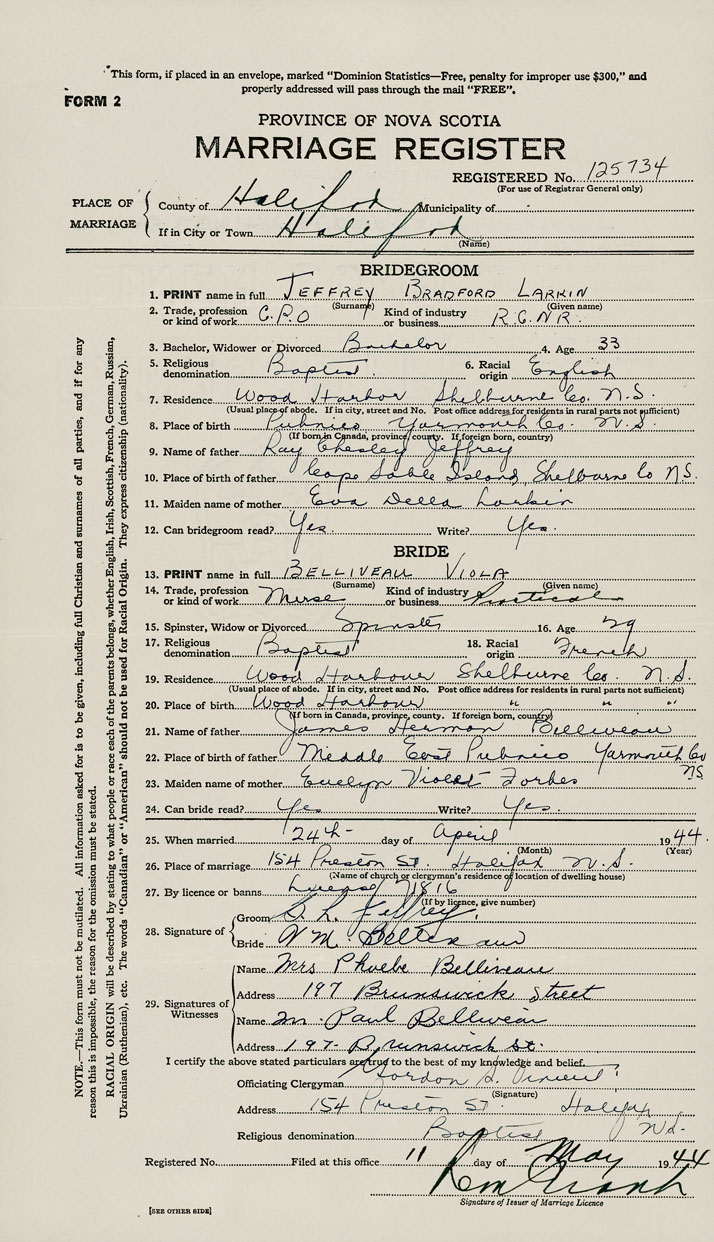 "This form, if placed in an envelope, marked "Dominion Statistics—Free, penalty for improper use $300," and
properly addressed will pass through the mail "FREE".
FORM 2
PROVINCE OF NOVA SCOTIA
MARRIAGE REGISTER
REGISTERED No. 125734
(For use of Registrar General only)
PLACE OF MARRIAGE
County of Halifax Municipality of
If in City or Town Halifax
(Name)
BRIDEGROOM
1. PRINT name in full JEFFREY BRADFORD LARKIN
(Surname) (Given name)
2. Trade, profession or kind of work C.P.O Kind of industry or business R.C.N.R.
3. Bachelor, Widower or Divorced Bachelor 4. Age 33
5. Religious denomination Baptist 6. Racial origin English
7. Residence Wood Harbor Shelburne Co. N.S.
(Usual place of abode. If in city, street and No. Post office address for residents in rural parts not sufficient)
8. Place of birth Pubnico Yarmouth Co. N.S.
(If born in Canada, province, county. If foreign born, country)
9. Name of father Ray Chesley Jeffrey
10. Place of birth of father Cape Sable Island, Shelburne Co N.S.
11. Maiden name of mother Eva Della Larkin
12. Can bridegroom read? Yes. Write? Yes.
BRIDE
13. PRINT name in full BELLIVEAU VIOLA
(Surname) (Given name)
14. Trade, profession or kind of work Nurse Kind of industry or business Practical
15. Spinster, Widow or Divorced Spinster 16. Age 29
17. Religious denomination Baptist 18. Racial origin French
19. Residence Wood Harbour Shelburne Co. N.S.
(Usual place of abode. If in city, street and No. Post office address for residents in rural parts not sufficient)
20. Place of birth Wood Harbour " " "
(If born in Canada, province, county. If foreign born, country)
21. Name of father James Herman Belliveau
22. Place of birth of father Middle East Pubnico Yarmouth Co
NS
23. Maiden name of mother Evelyn Violet Forbes
24. Can bride read? Yes Write? Yes.
25. When married 24th day of April 1944.
(Month) (Year)
26. Place of marriage 154 Preston St. Halifax N.S.
(Name of church or clergyman's residence or location of dwelling house)
27. By licence or banns License 71816
(If by licence, give number)
28. Signature of
Groom Jeffrey.
Bride V M. Belliveau
29. Signatures of Witnesses
Name Mrs Phoebe Belliveau
Address 197 Brunswick Street
Name Paul Belliveau
Address 197 Brunswick St.
I certify the above stated particulars are true to the best of my knowledge and belief.
Officiating Clergyman Gordon
(Signature)
Address 154 Preston ST. Halifax
Religious denomination Baptist
Registered No. Filed at this office 11 day of May 1944
Signature of Issuer of Marriage Licence
[SEE OTHER SIDE]
NOTE.—This form must not be mutilated. All information asked for is to be given, including full Christian and surnames of all parties, and if for any
reason this is impossible, the reason for the omission must be stated.
RACIAL ORIGIN will be described by stating to what people or race each of the parents belongs, whether English, Irish, Scottish, French, German, Russian,
Ukrainian (Ruthenian), etc. The words "Canadian" or "American" should not be used for Racial Origin. They express citizenship (nationality).